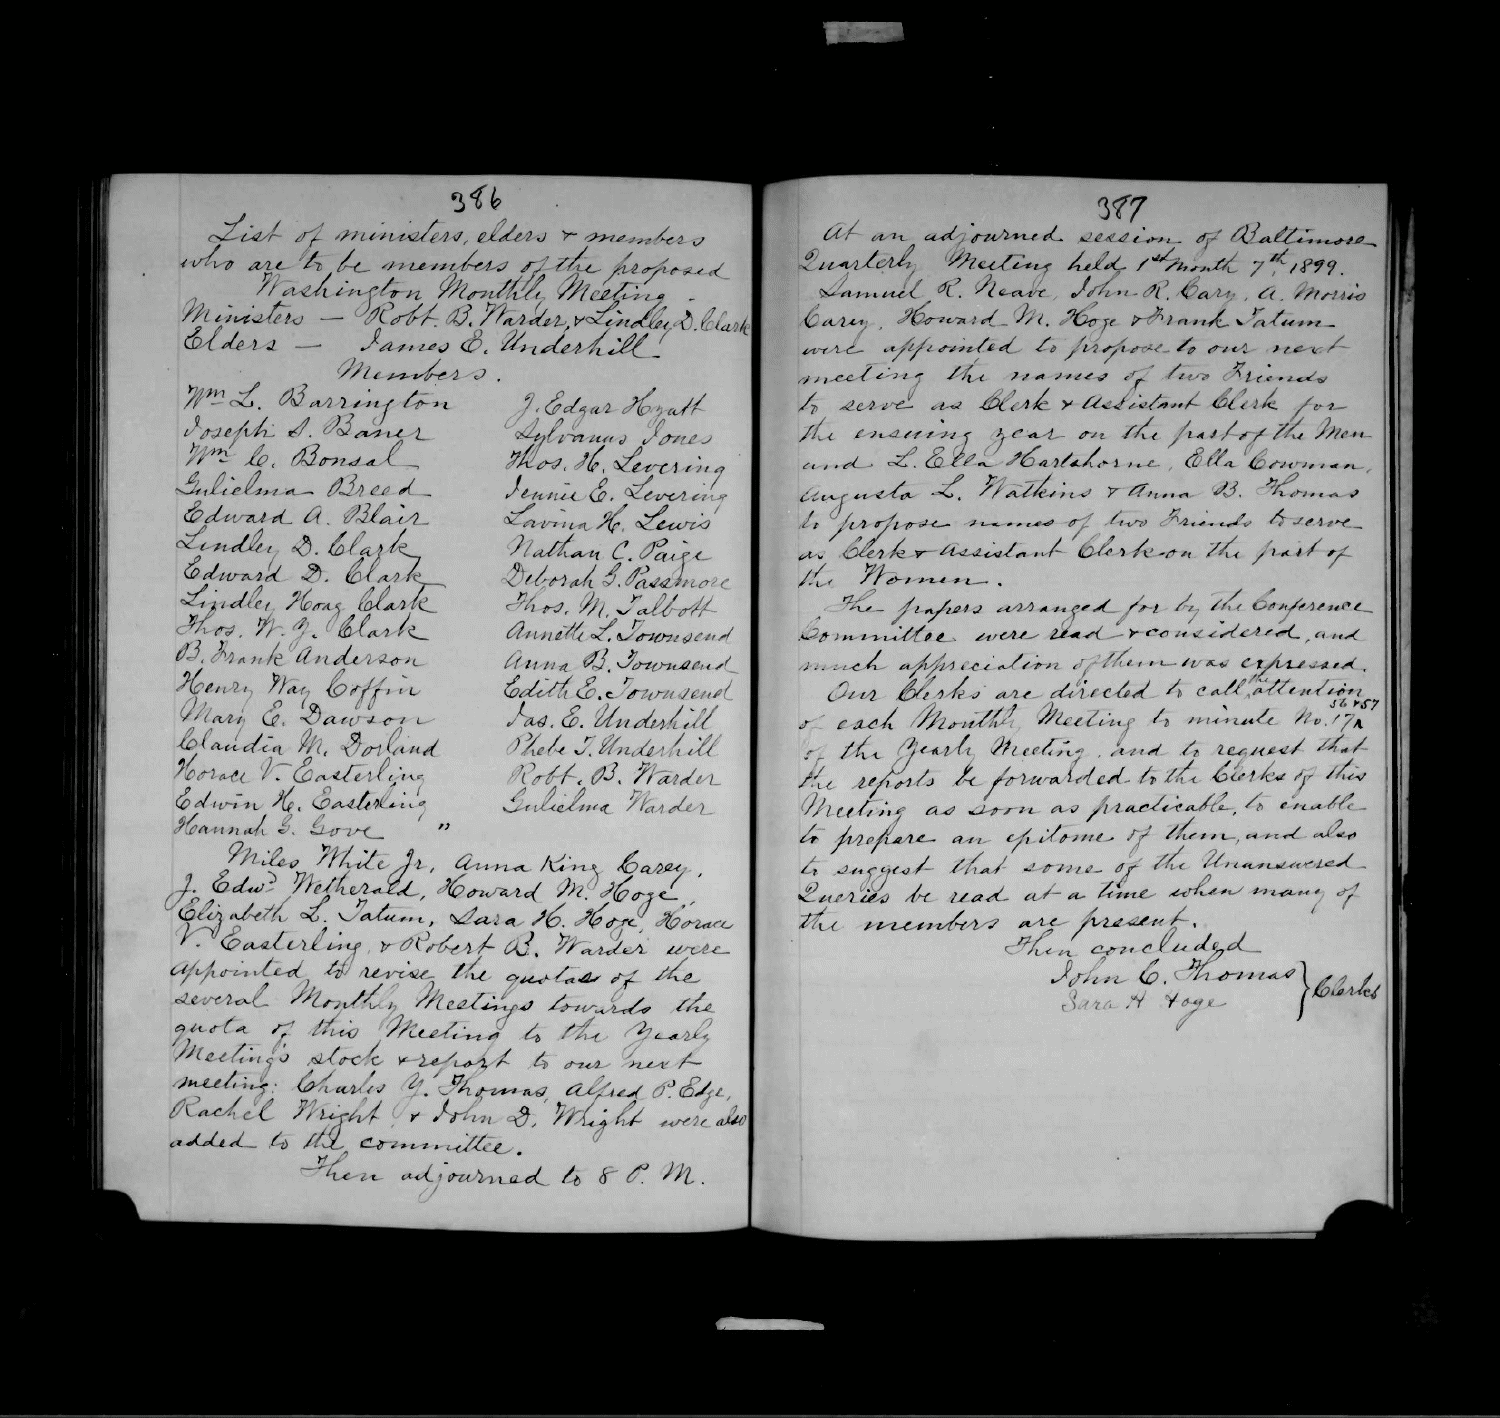 386
List of ministers, elders & members
who are to be members of the proposed
Washington Monthly Meeting.
Ministers — Robt. B. Warder, & Lindley D. Clark
Elders — James E. Underhill
Members.
Wm L. Barrington
Joseph S. Baner
Wm C. Bonsal
Gulielma Breed
Edward A. Blair
Lindley D. Clark
Edward D. Clark
Lindley Hoag Clark
Thos. W. Y. Clark
B. Frank Anderson
Henry Way Coffin
Mary E. Dawson
Claudia M. Dorland
Horace V. Easterling
Edwin H. Easterling
Hannah G. Gove "
J. Edgar Hyatt
Sylvanus Jones
Thos. H. Levering
Jennie E. Levering
Lavina H. Lewis
Nathan C. Paige
Deborah G. Passmore
Thos. M. Talbott
Annette L. Townsend
Anna B. Townsend
Edith E. Townsend
Jas. E. Underhill
Phebe T. Underhill
Robt. B. Warder
Gulielma Warder
Miles White Jr, Anna King Carey,
J. Edwd Wetherald, Howard M. Hoge,
Elizabeth L. Tatum, Sara H. Hoge, Horace
V. Easterling, & Robert B. Warder were
appointed to revise the quotas of the
several Monthly Meetings towards the
quota of this Meeting to the Yearly
Meeting's stock & report to our next
meeting: Charles Y. Thomas, Alfred P. Edge,
Rachel Wright, & John D. Wright were also
added to the committee.
Then adjourned to 8 P. M.
387
At an adjourned session of Baltimore
Quarterly Meeting held 1st month 7th 1899.
Samuel R. Neave, John R. Cary, A. Morris
Carey, Howard M. Hoge & Frank Tatum
were appointed to propose to our next
meeting the names of two Friends
to serve as Clerk & Assistant Clerk for
the ensuing year on the part of the Men
and L. Ella Hartshorne, Ella Cowman,
Augusta L. Watkins & Anna B. Thomas
to propose names of two Friends to serve
as Clerk & Assistant Clerk on the part of
the Women.
The papers arranged for by the Conference
Committee were read & considered, and
much appreciation of them was expressed.
Our Clerks are directed to call the attention
of each Monthly Meeting to minute No. 17, 56 & 57
of the Yearly Meeting, and to request that
the reports be forwarded to the Clerks of this
Meeting as soon as practicable, to enable
to prepare an epitome of them, and also
to suggest that some of the Unanswered
Queries be read at a time when many of
the members are present.
Then concluded
John C. Thomas
Sara H Hoge
} Clerks